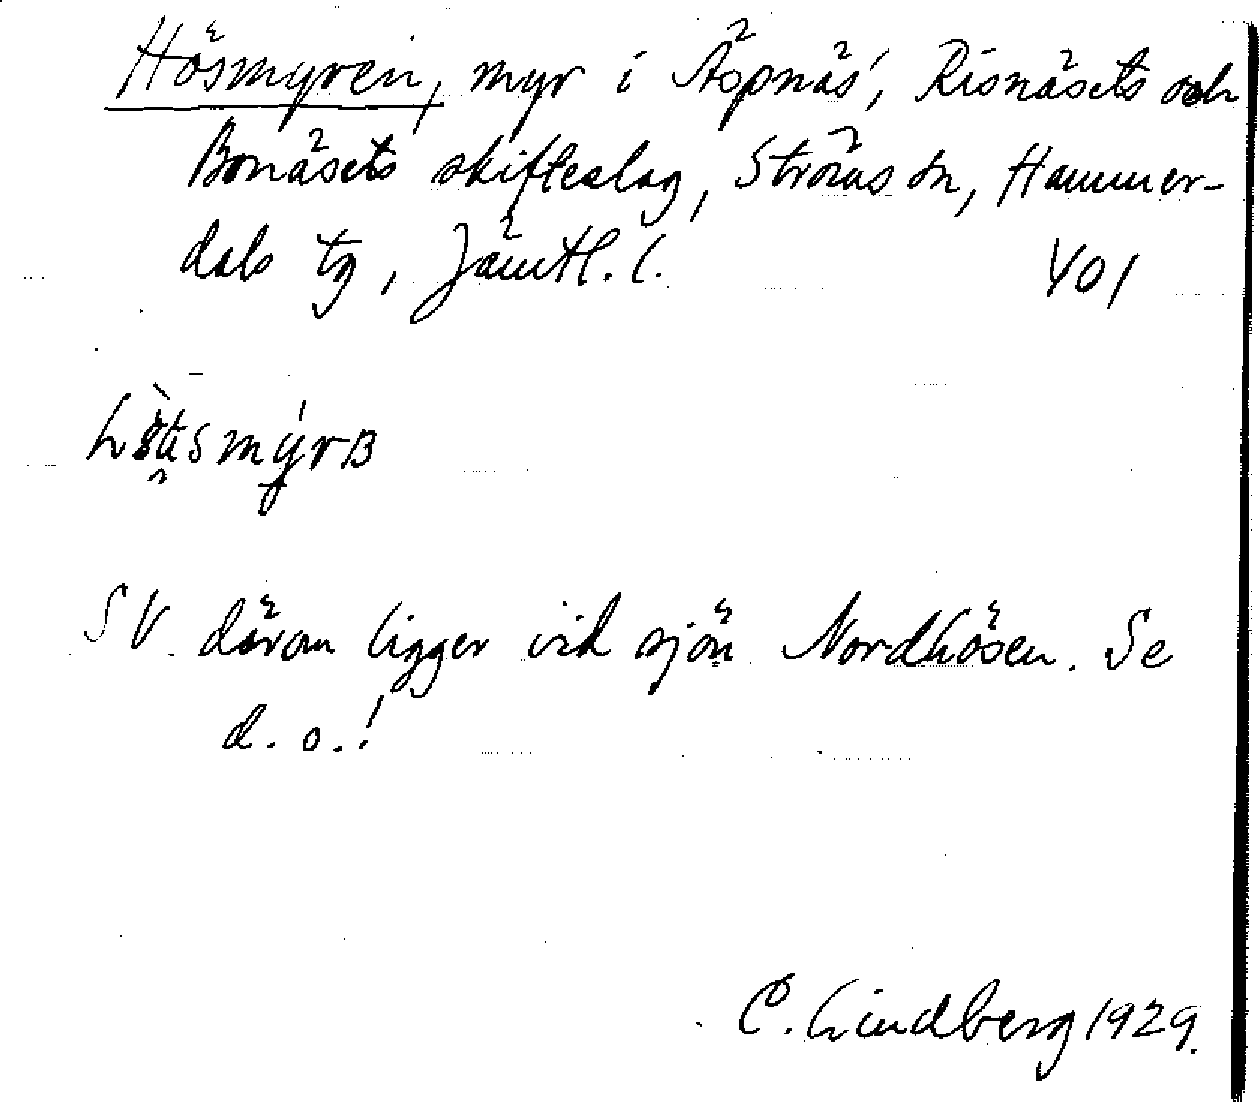 Hösmyren, myr i Äspnäs', Risnäsets och
Bonäsets skifteslag, Ströms sn, Hammer-
dals tg, Jämtl. l. VO1
SV däron ligger vid sjön Nordhösen. Se
d. o.!
C. Lindberg 1929.